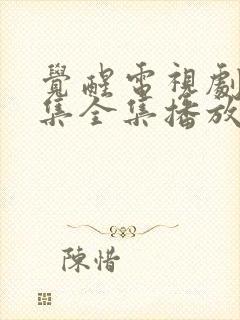 覺醒電視劇
集全集播放
陳惜